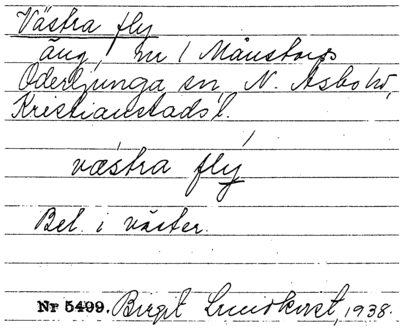 Västra fly
äng, nr 1 Månstorp
Oderljunga sn, N. Åsbo hd,
Kristianstads l.
væstra fly
Bel. i väster.
Nr 5499. Birgit Lundkvist, 1938.